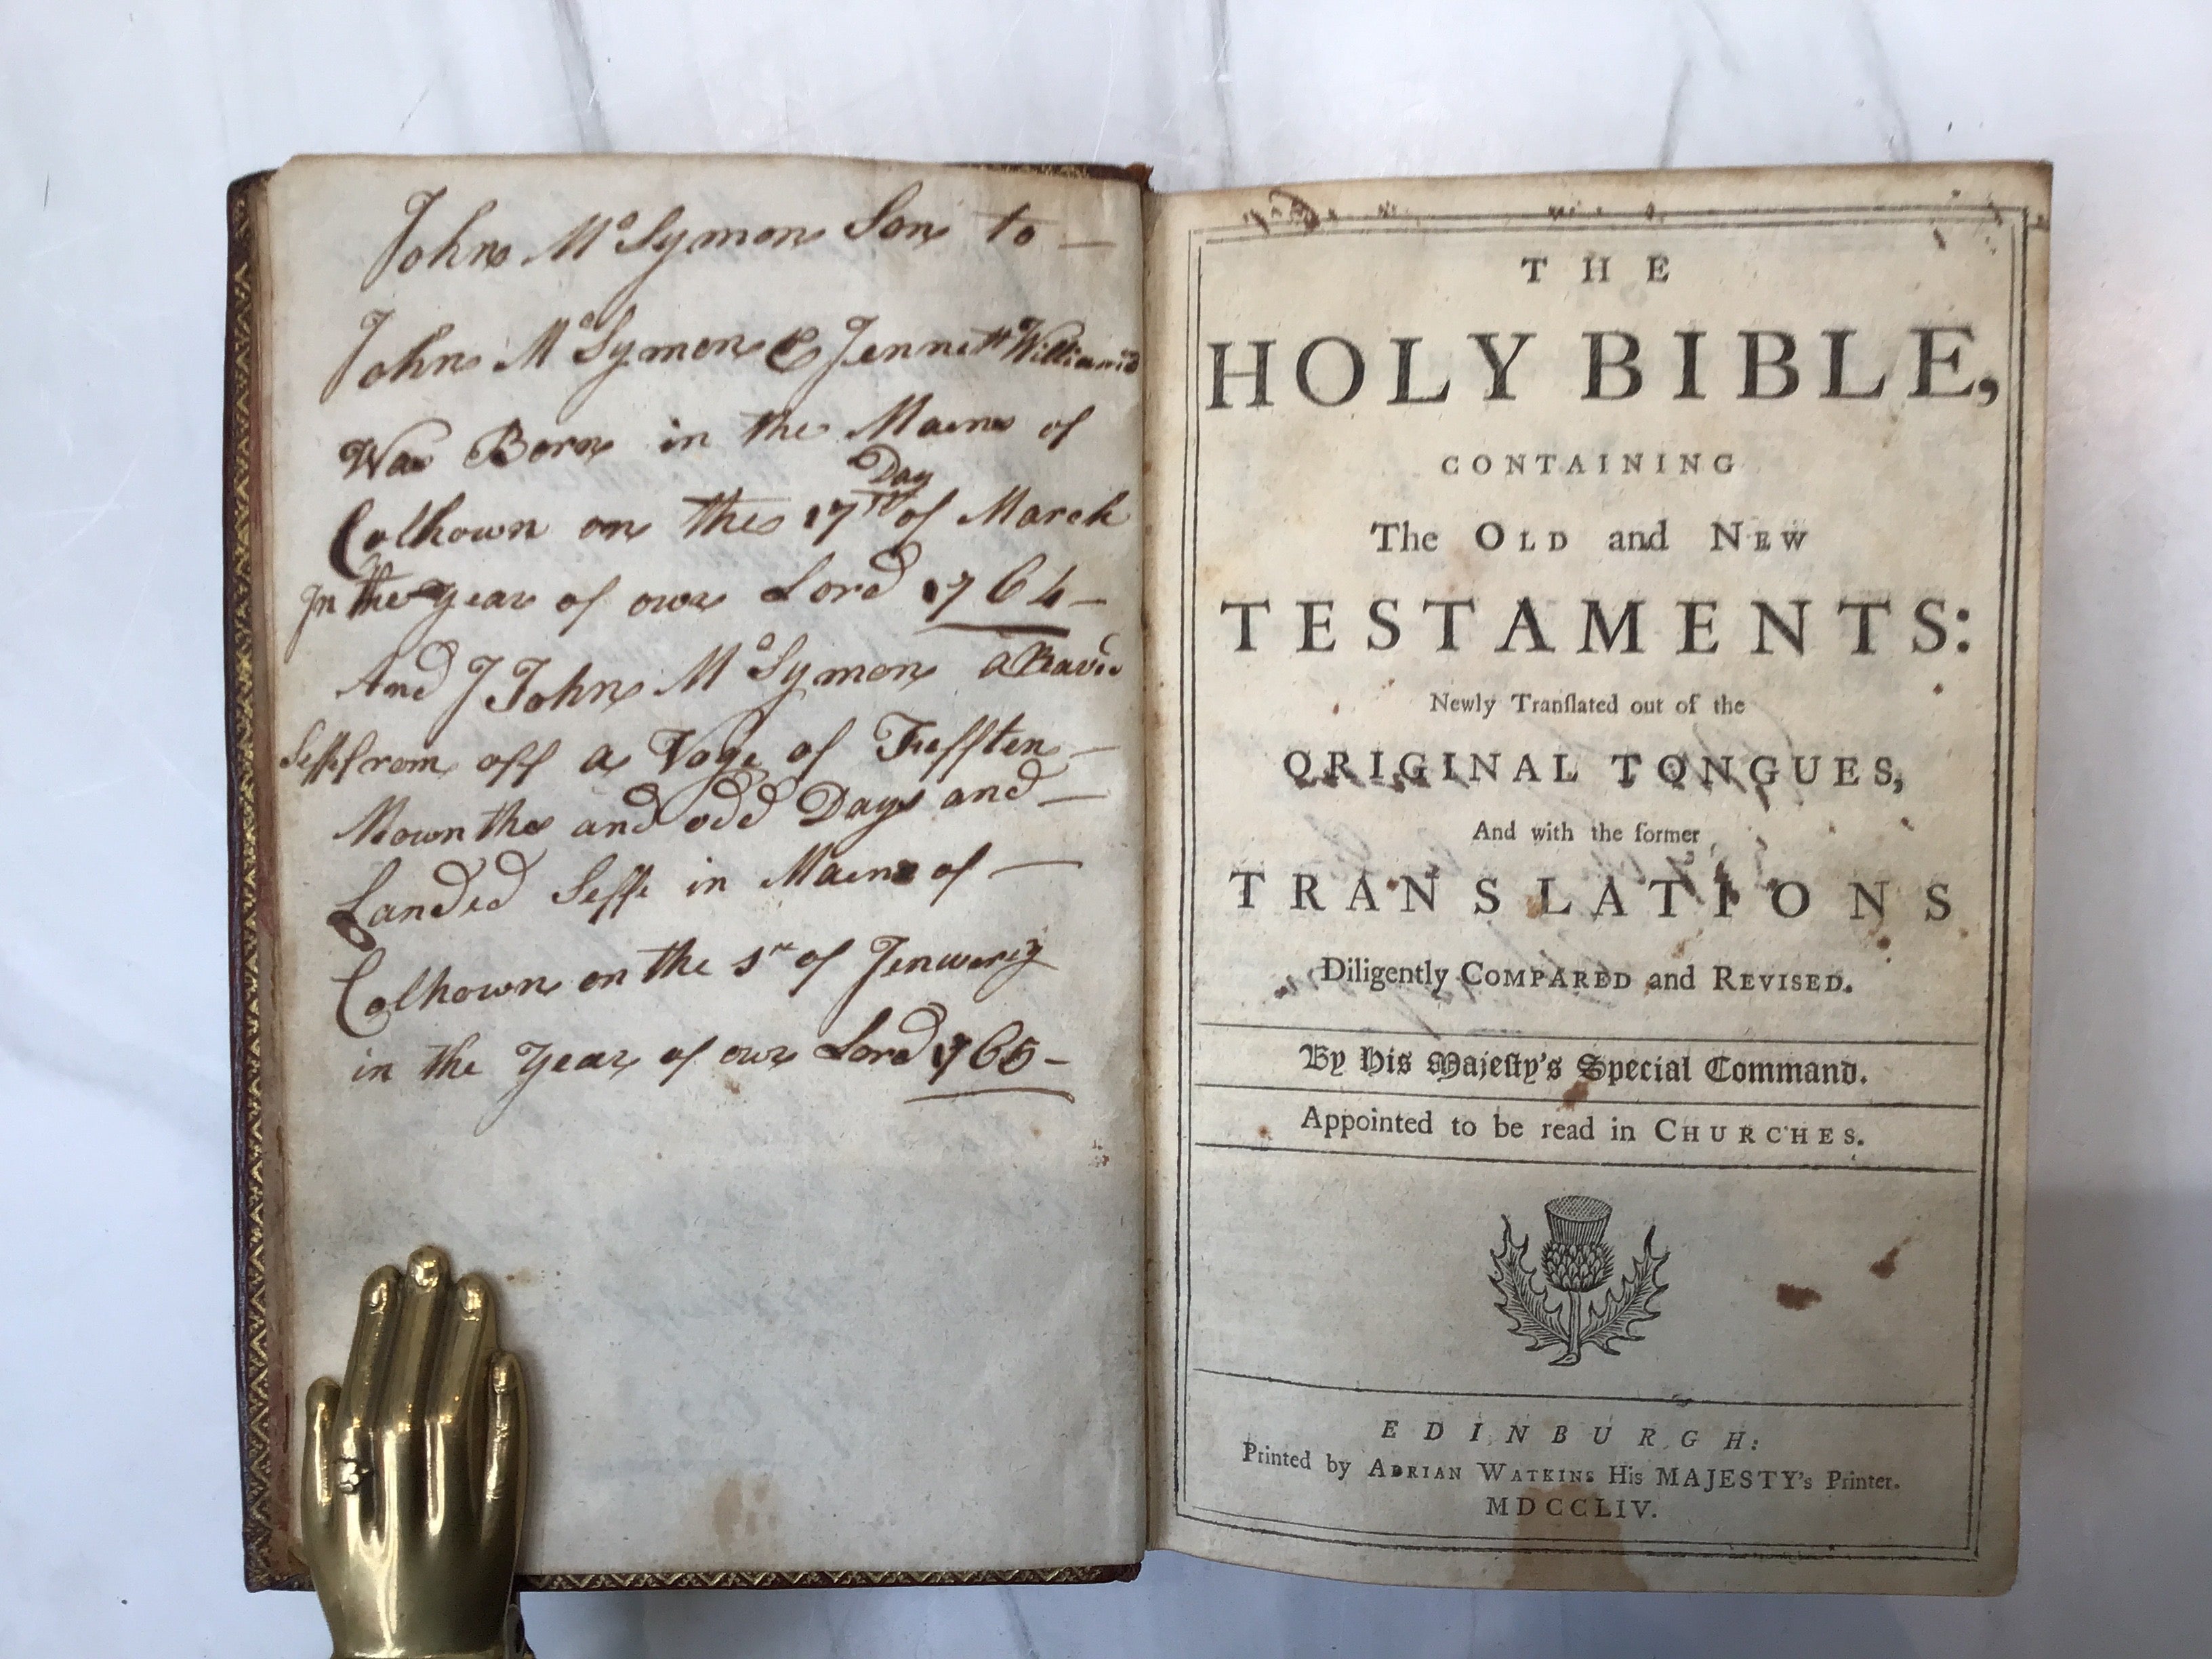 John Mc Symon Son to —
John Mc Symon & Jennett
Was Born in the Mains of
Colhown on the 17th Day of March
In the year of our Lord 1764 —
And I John Mc Symon
Seffe from off a Voge of Fiefften —
Mownths and odd Days and —
Landed Seffe in Mains of —
Colhown on the 1st of Jenwarey
in the Year of our Lord 1765 —
THE
HOLY BIBLE,
CONTAINING
The OLD and NEW
TESTAMENTS:
Newly Tranſlated out of the
ORIGINAL TONGUES,
And with the former
TRANSLATIONS
Diligently COMPARED and REVISED.
By His Majeſty's Special Command.
Appointed to be read in CHURCHES.
EDINBURGH:
Printed by ADRIAN WATKINS His MAJESTY's Printer.
MDCCLIV.